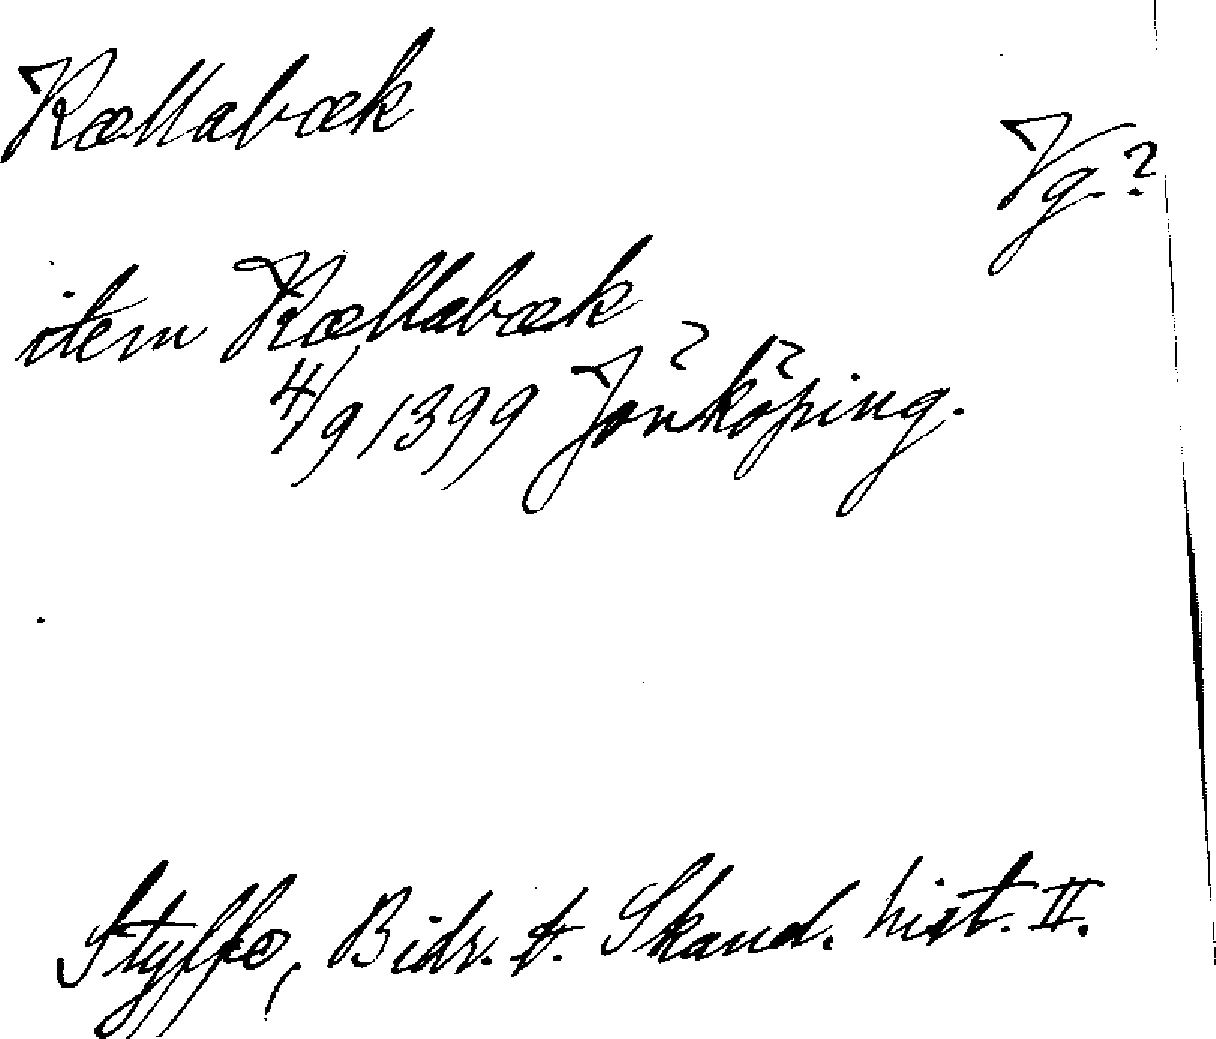 Kællabæk
Vg.?
item Kællabæk
4/9 1399 Jönköping.
Styffe, Bidr. t. Skand. hist. II.